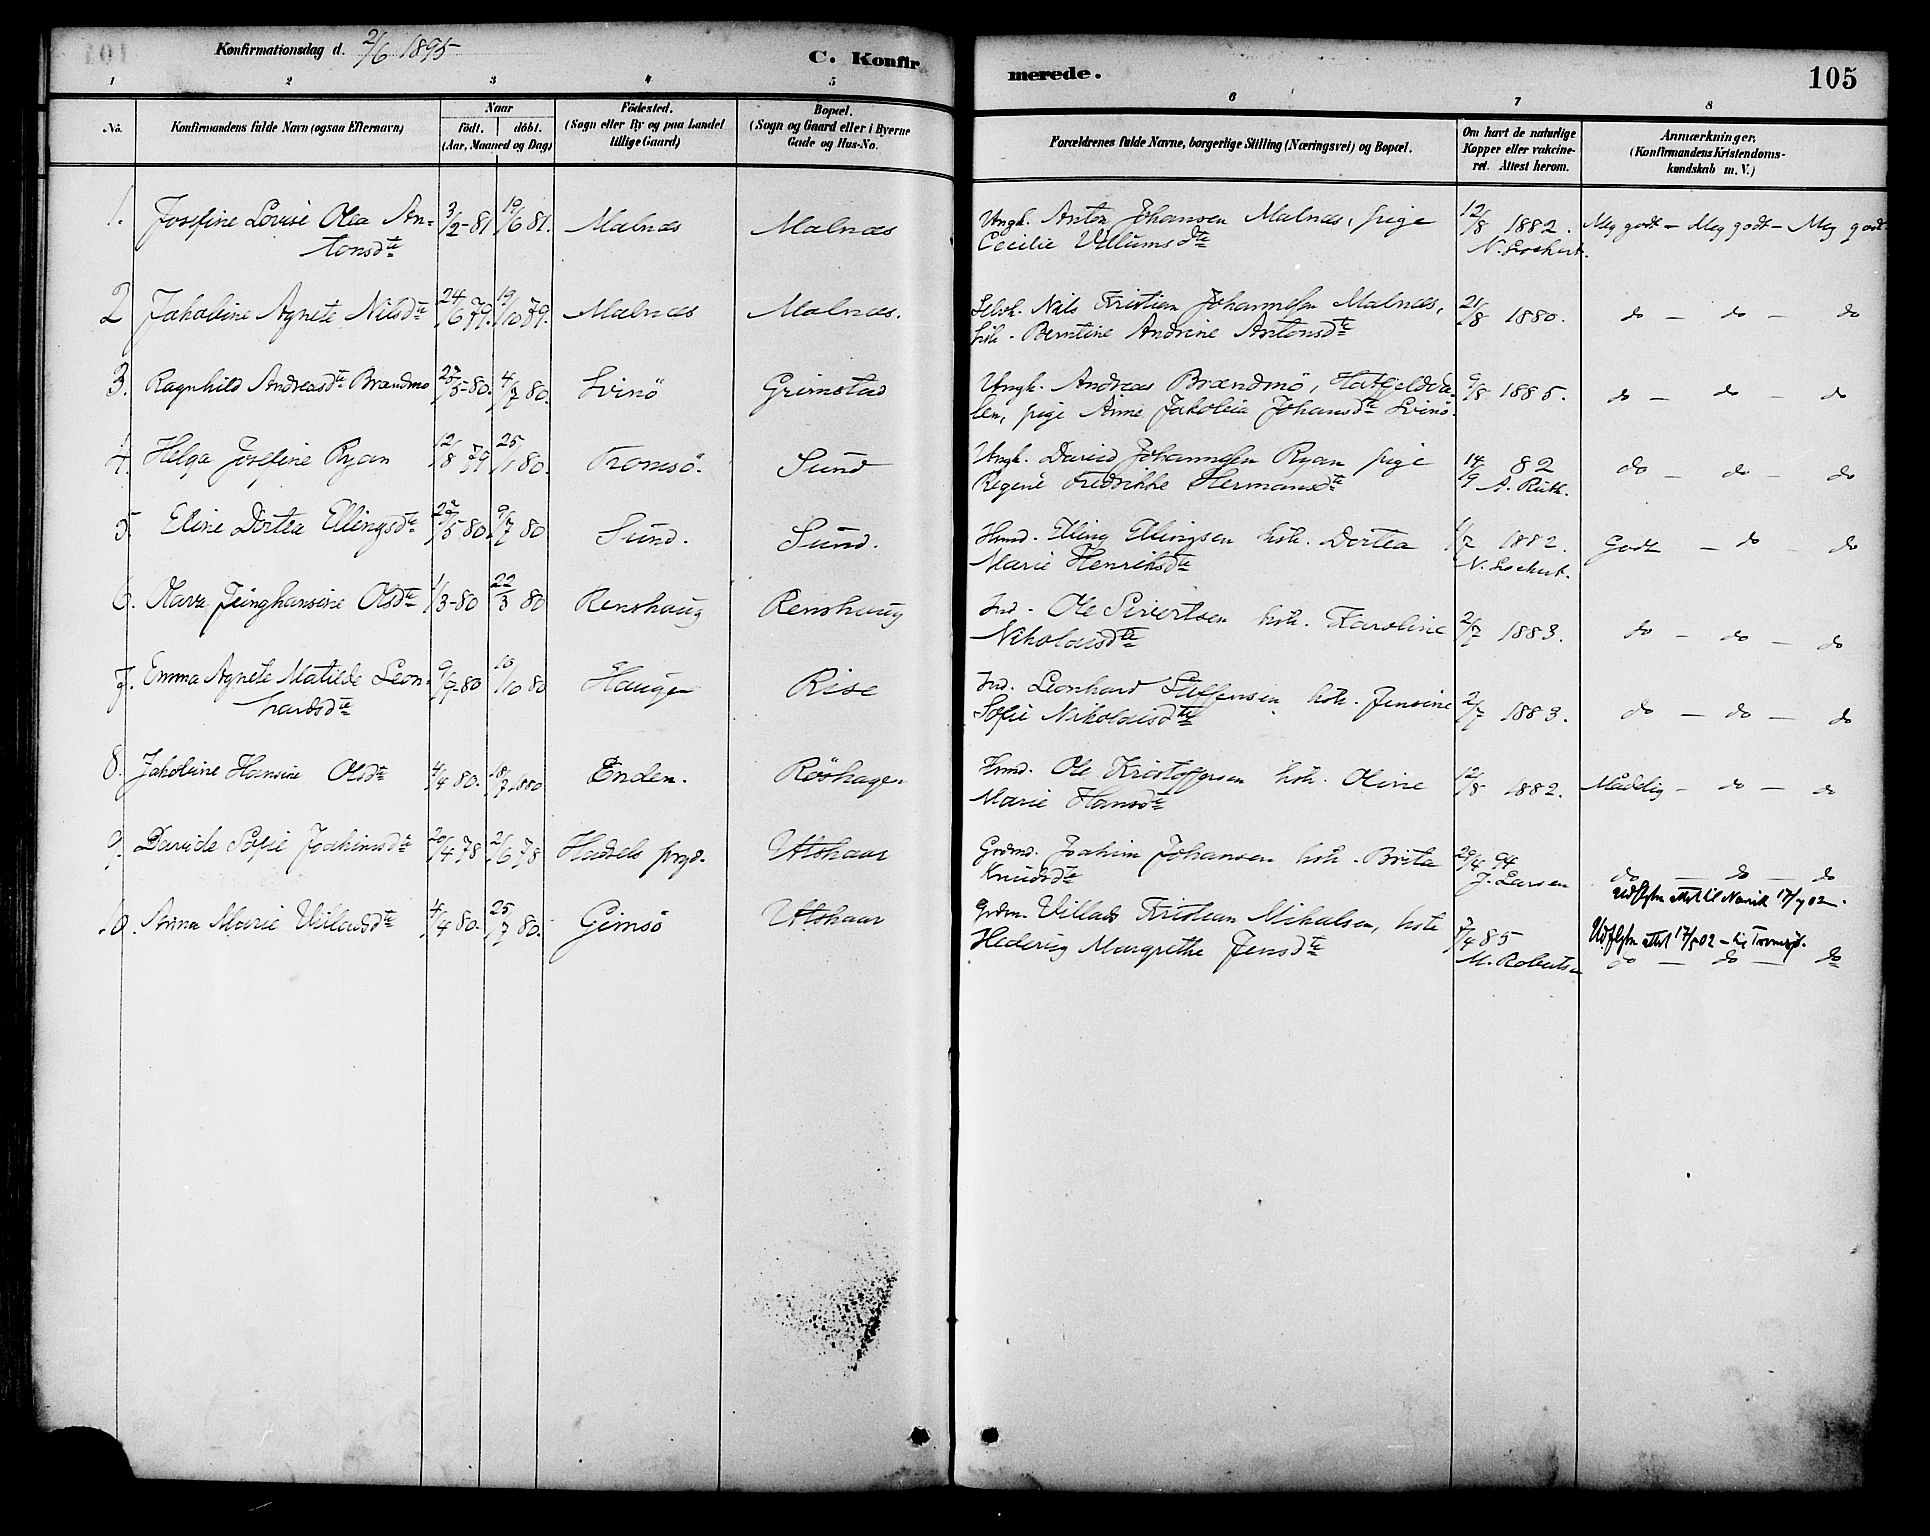 Konfirmationsdag d. 2/6 1895
C. Konfirmerede.
105
1 2 3 4 5 6 7 8
No.
Konfirmandens fulde Navn (ogsaa Efternavn)
Naar
födt. döbt.
(Aar, Maaned og Dag)
Födested.
(Sogn eller By og paa Landet
tillige Gaard)
Bopæl.
(Sogn og Gaard eller i Byerne
Gade og Hus-No.
Forældrenes fulde Navne, borgerlige Stilling (Næringsvei) og Bopæl.
Om havt de naturlige
Kopper eller vakcine-
ret. Attest herom.
Anmærkninger.
(Konfirmandens Kristendoms-
kundskab m. V.)
1. Josefine Lovise Olea An- 3/2-81 19/6 81. Malnæs Malnæs Ungk. Anton Johansen Malnæs, pige 12/8 1882. Meg godt - Meg godt - Meg godt
tonsdtr Cecilie Villumsdtr N. Lockert.
2 Jakobine Agnete Nilsdtr 24/6 79. 19/10 79. Malnæs Malnæs. Selvk. Nils Kristian Johannesen Malnæs, 21/8 1880. do - do - do
hstr. Berntine Andrine Antonsdtr
3. Ragnhild Andreasdtr Brændmo 23/5-80. 4/7 80. Svinö Grimstad Ungk. Andreas Brændmö, Hatfjeldda- 9/8 1885. do - do - do
len, pige Anne Jakobia Johansdtr Svinö.
4. Helga Josefine Ryan 12/8 79 25/1 80. Tromsö. Sund Ungk. David Johannesen Ryan pige 14/9 82 do - do - do
Regine Fredrikke Hermansdtr A. Ruth.
5. Eline Dortea Ellingsdtr 22/5 80. 9/7 80 Sund. Sund. Hmd. Elling Ellingsen hstr. Dortea 1/7 1882. Godt - do - do
Marie Henriksdtr N. Lockert.
6. Olava Jünghansine Olsdtr 1/3-80 22/3 80 Renshaug Renshaug Ind. Ole Sivertsen hstr. Karoline 2/7 1883. do - do - do
Nikolaisdtr
7. Emma Agnete Matilde Leon- 9/7-80 10/10 80 Haugen Rise Ind. Leonhard Steffensen hstr. Jensine 2/7 1883. do - do - do
hardsdtr Sofie Nikolaisdtr
8. Jakobine Hansine Olsdtr 4/4 80. 18/7 1880 Enden. Röshagen Hmd. Ole Kristoffersen hstr. Oline 12/8 1882. Maadelig - do - do
Marie Hansdtr
9. Davide Sofie Joakimsdtr 20/4 78 2/6 78 Hadsels prgd. Utshaar Grdmd. Joakim Johansen hstr. Brita 29/4 94 do - do - do
Knudsdtr J. Larsen Udflytn attst til Narvik 17/7 02.
10. Anna Marie Villadsdtr 4/4 80. 25/7 80. Gimsö Utshaar Grdm. Villads Kristian Mikalsen, hstr 7/4 85 Udflytn attst 17/5 02 - til Tromsö.
Hedevig Margrethe Jensdtr M. Robertsen do - do - do